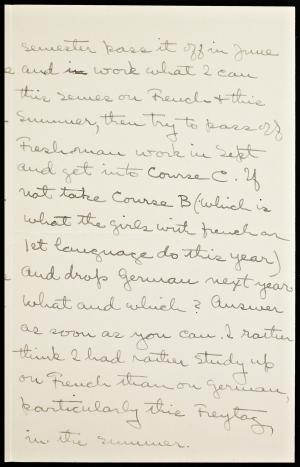 semester pass it off in June
and in work what I can
this semes on French & this
Summer, then try to pass off
Freshman work in Sept
and get into Course C. If
not take Course B (which is
what the girls with french as
1st language do this year)
and drop German next year
What and which? Answer
as soon as you can. I rather
think I had rather study up
on French than on German,
particularly this Freytag,
in the summer.